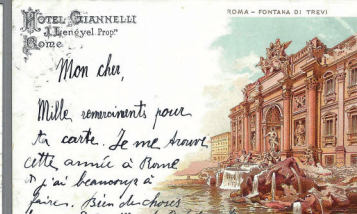 HOTEL GIANNELLI
J. Lengyel Propre
Rome
ROMA – FONTANA DI TREVI
Mon cher,
Mille remerciments pour
ta carte. Je me trouve
cette année à Rome
j'ai beaucoup à
faire. Bien des choses